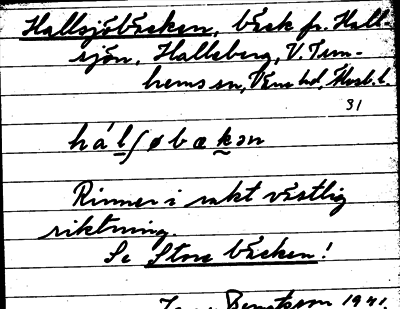 Hallsjöbäcken, bäck fr. Hall-
sjön, Hallsberg, V. Trn-
hems sn, Vene hd, Älvsb. l.
31
háḻʃøbæḵən
Rinner i rakt västlig
riktning.
Se Stora bäcken!
Bengtsson 1941.